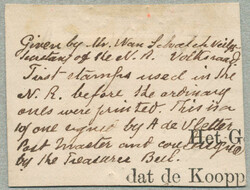 Given by Mr. Van Schalch
Secretary of the N. R. Volksraad
First stamps used in the
N. R. before the ordinary
ones were printed. This is a
10 one signed by A de Vletter
Post Master and
by the Treasurer Bell.
Het G
dat de Koopp